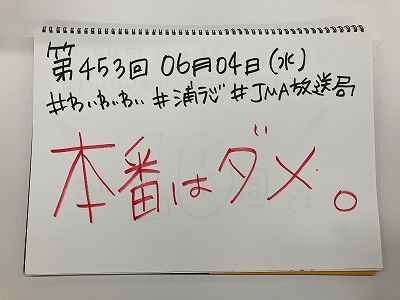 第453回 06月04日(水)
#わいわいわい #浦ラジ #JMA放送局
本番はダメ。